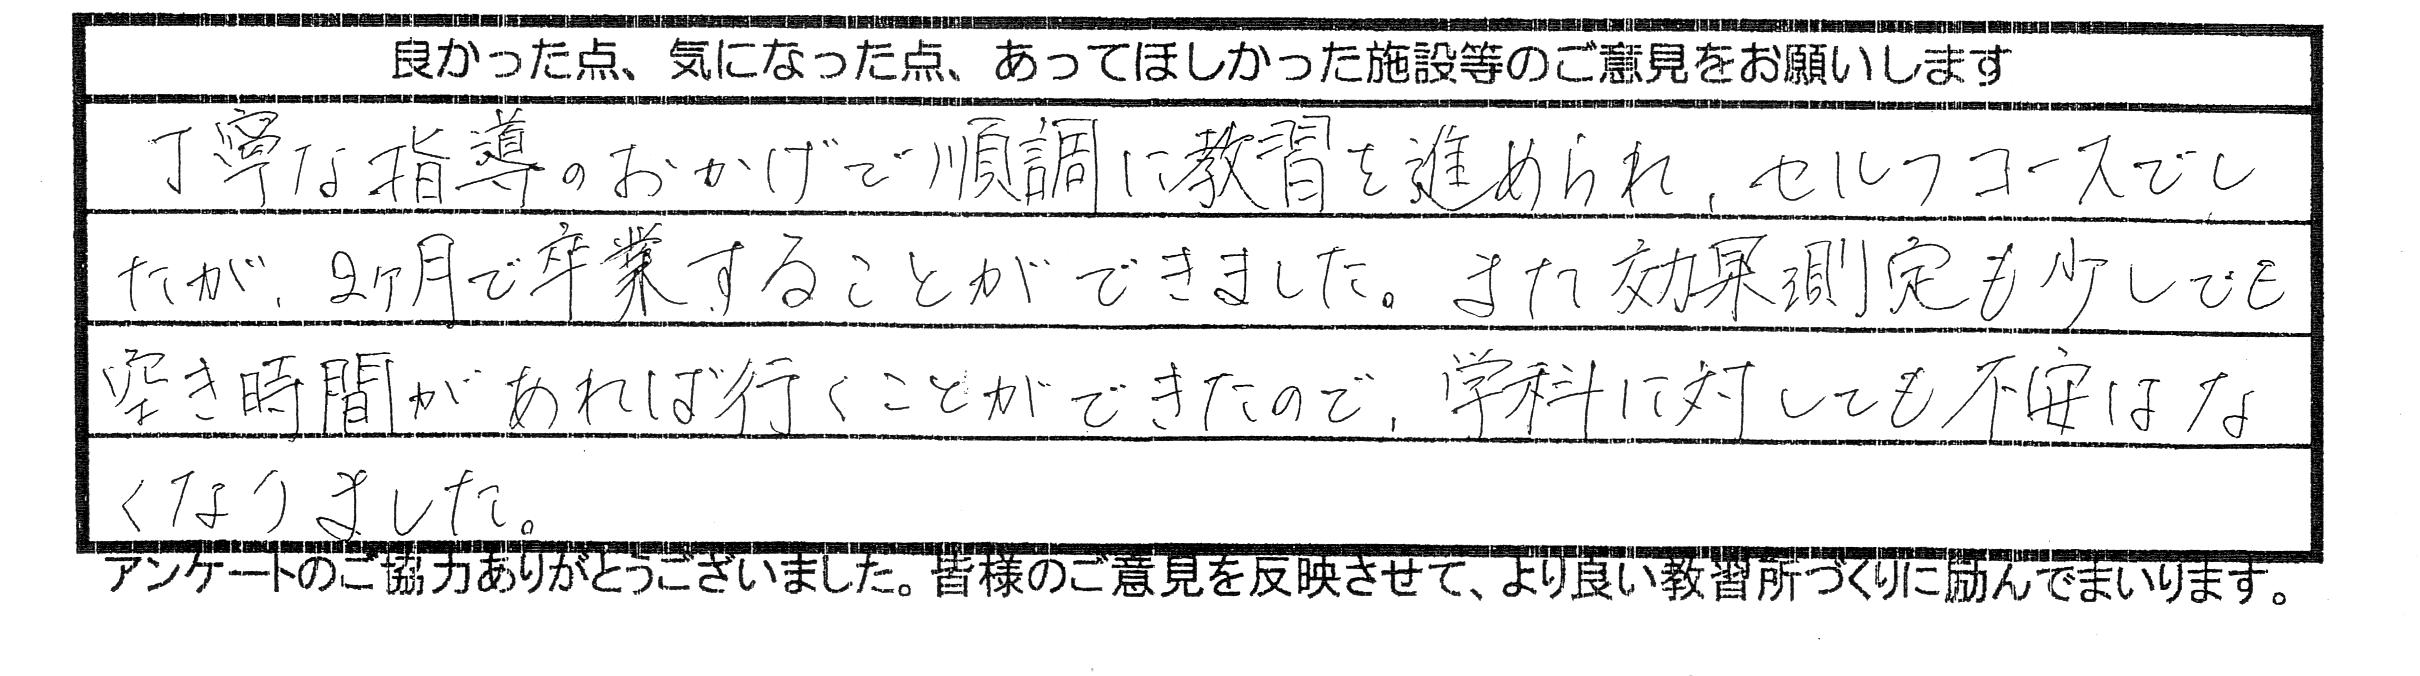 良かった点、気になった点、あってほしかった施設等のご意見をお願いします
丁寧な指導のおかげで順調に教習を進められ、セルフコースでし
たが、2ヶ月で卒業することができました。また効果測定も少しでも
空き時間があれば行くことができたので、学科に対しても不安はな
くなりました。
アンケートのご協力ありがとうございました。皆様のご意見を反映させて、より良い教習所づくりに励んでまいります。